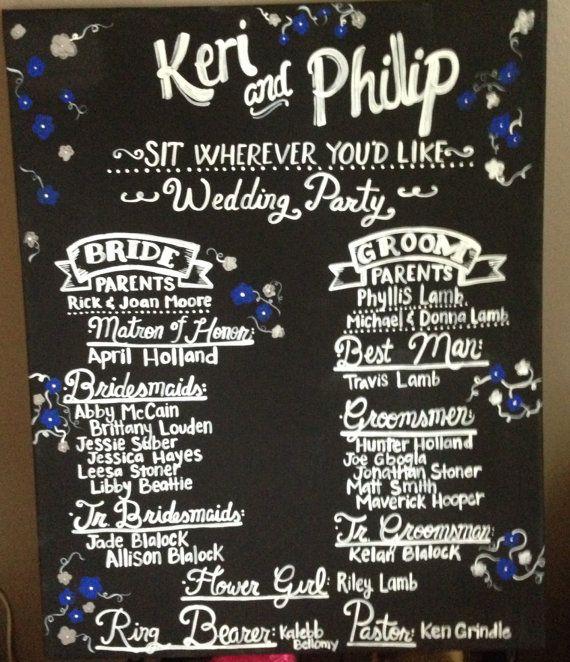 Keri
and Philip
SIT WHEREVER YOU'D LIKE
Wedding Party
BRIDE
PARENTS
Rick & Joan Moore
Matron of Honor:
April Holland
Bridesmaids:
Abby McCain
Brittany Louden
Jessie Suber
Jessica Hayes
Leesa Stoner
Libby Beattie
Jr. Bridesmaids:
Jade Blalock
Allison Blalock
GROOM
PARENTS
Phyllis Lamb
Michael & Donna Lamb
Best Man:
Travis Lamb
Groomsmen:
Hunter Holland
Joe Gbogla
Jonathan Stoner
Matt Smith
Maverick Hooper
Jr. Groomsman:
Kelan Blalock
Flower Girl: Riley Lamb
Ring Bearer: Kalebb
Bellomy
Pastor: Ken Grindle